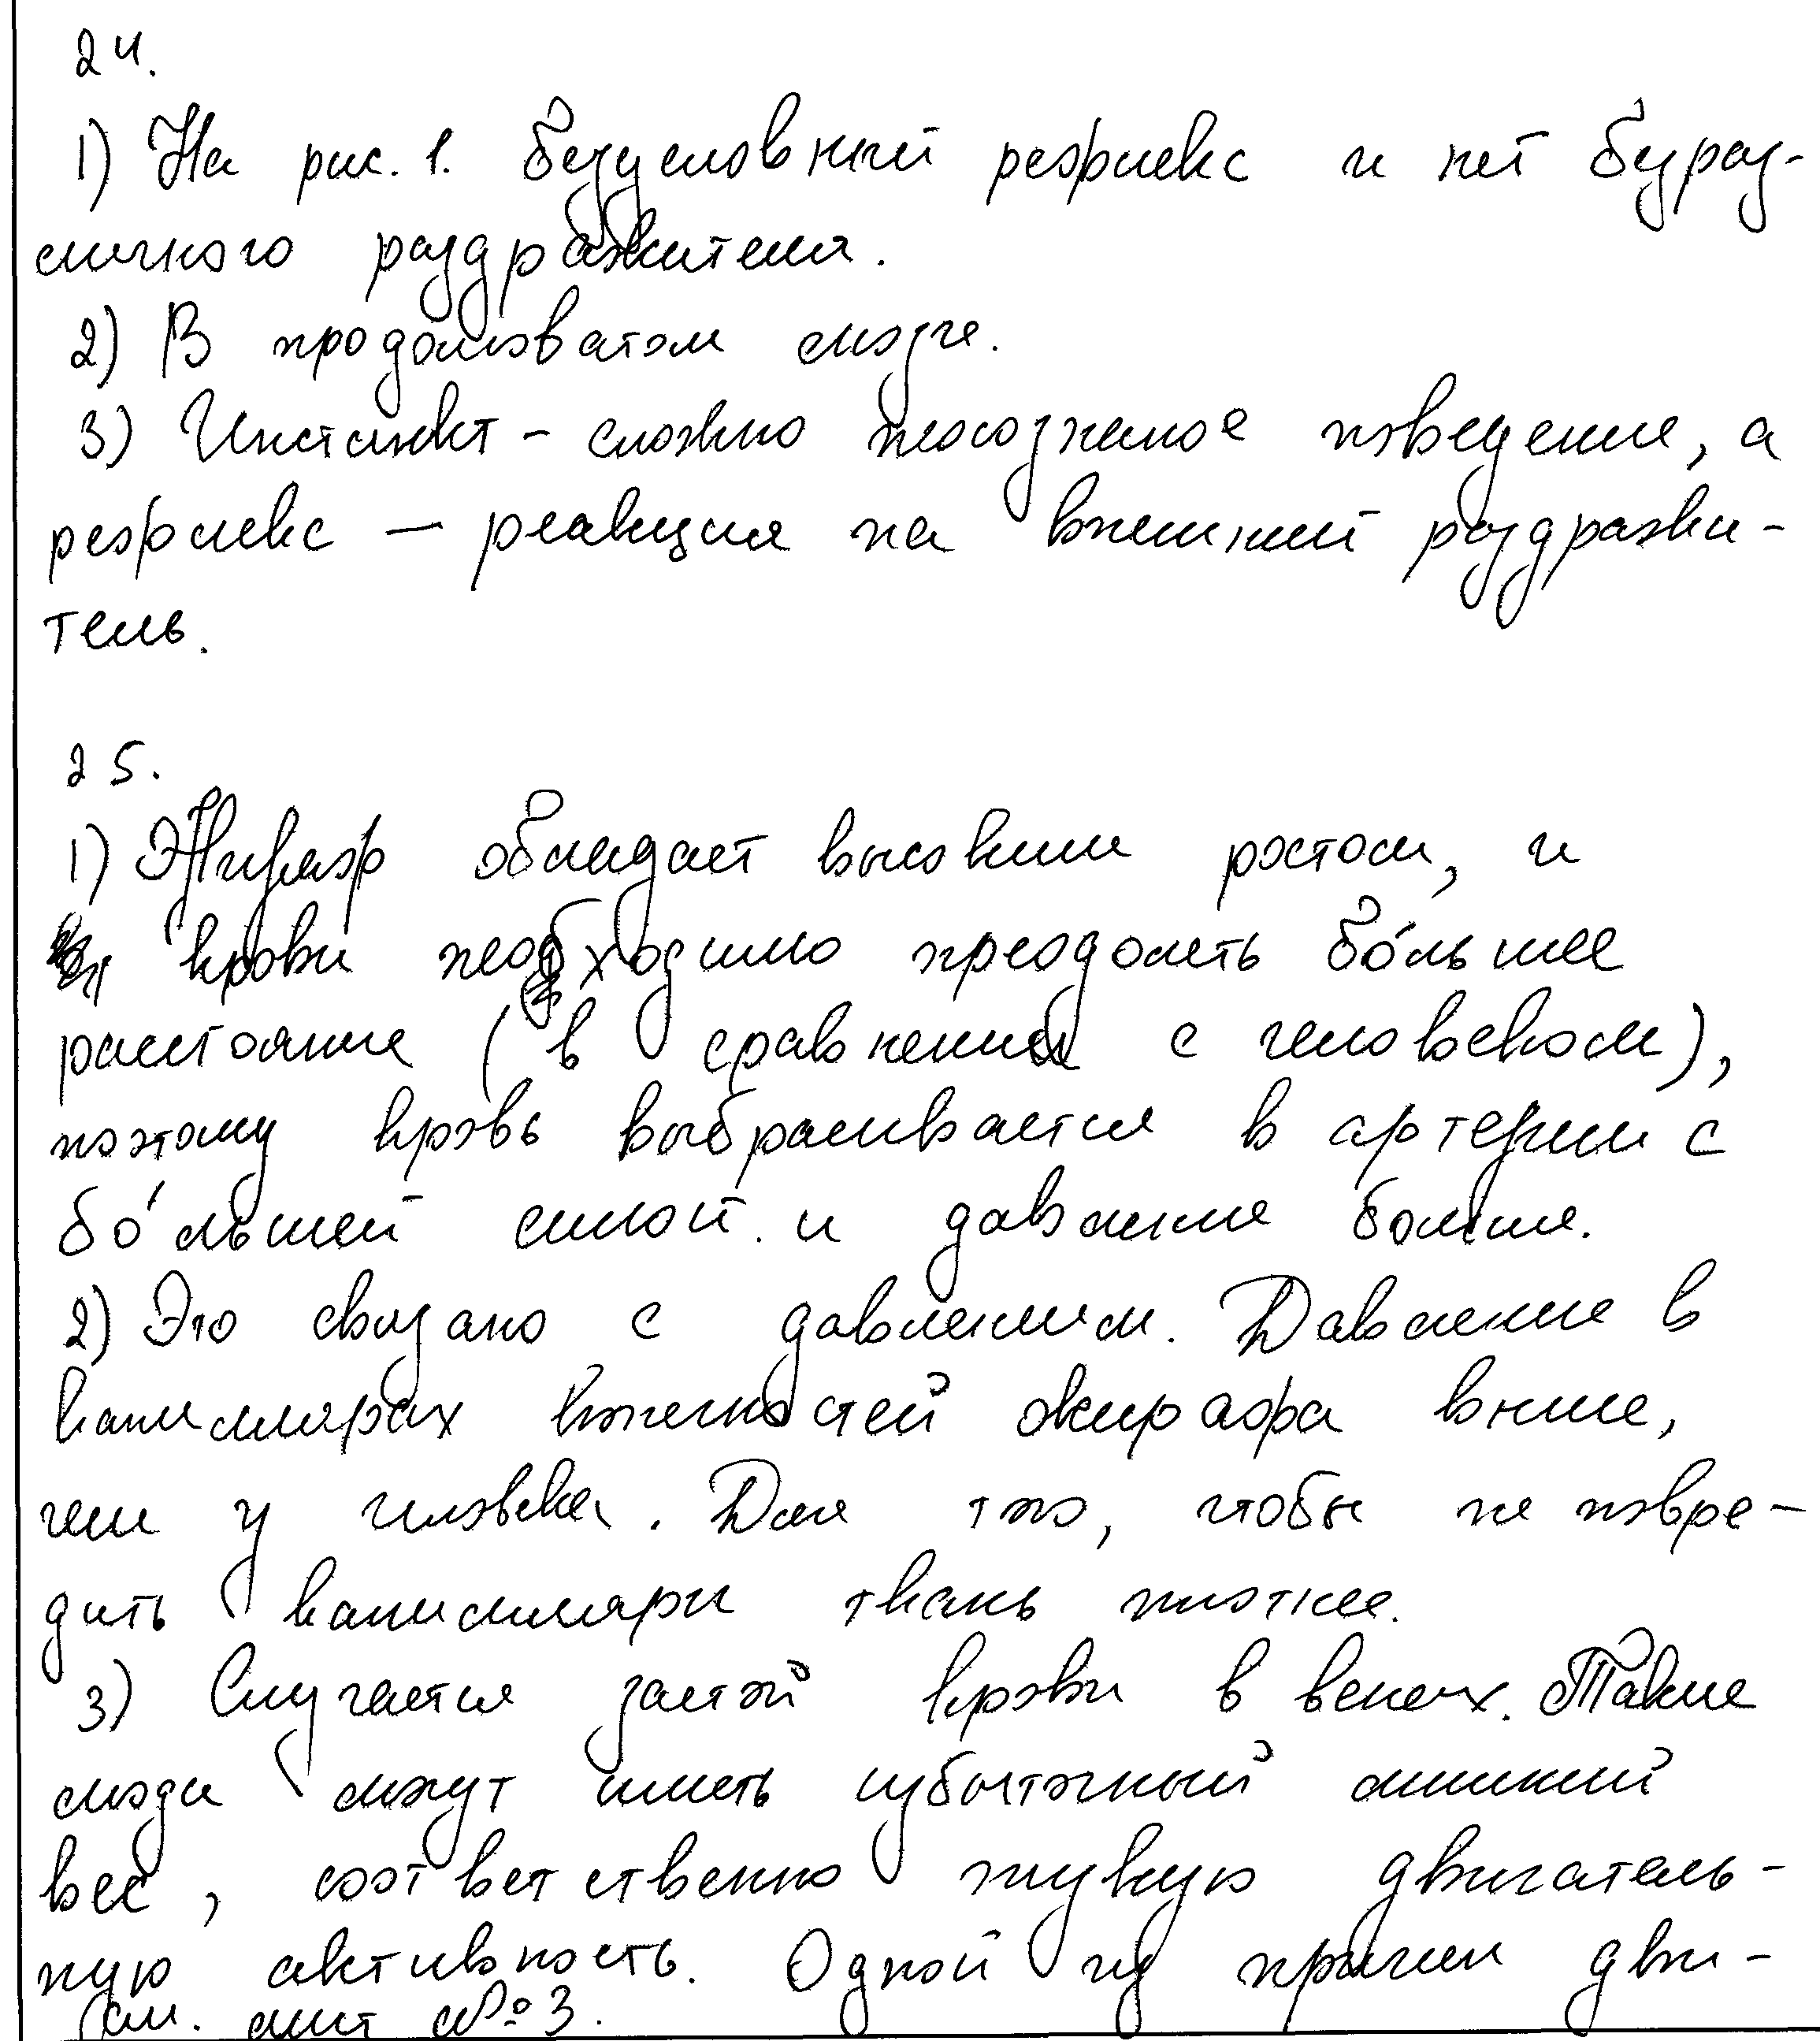 24.
1) На рис. 1. безусловный рефлекс и нет бураз-
личного раздражителя.
2) В продолговатом мозге.
3) Инстинкт - сложно неосознаное поведение, а
рефлекс — реакция на внешний раздражи-
тель.
25.
1) Жираф обладает высоким ростом, и
крови необходимо преодолеть бо́льшее
расстояние (в сравнении с человеком),
поэтому кровь выбрасывается в артерии с
бо́льшей силой и давление больше.
2) Это связано с давлением. Давление в
капиллярах конечностей жирафа выше,
чем у человека. Для того, чтобы не повре-
дить капилляры ткань плотнее.
3) Случается застой крови в венах. Такие
люди могут иметь избыточный лишний
вес, соответственно низкую двигатель-
ную активность. Одной из причин дви-
см. лист №3.